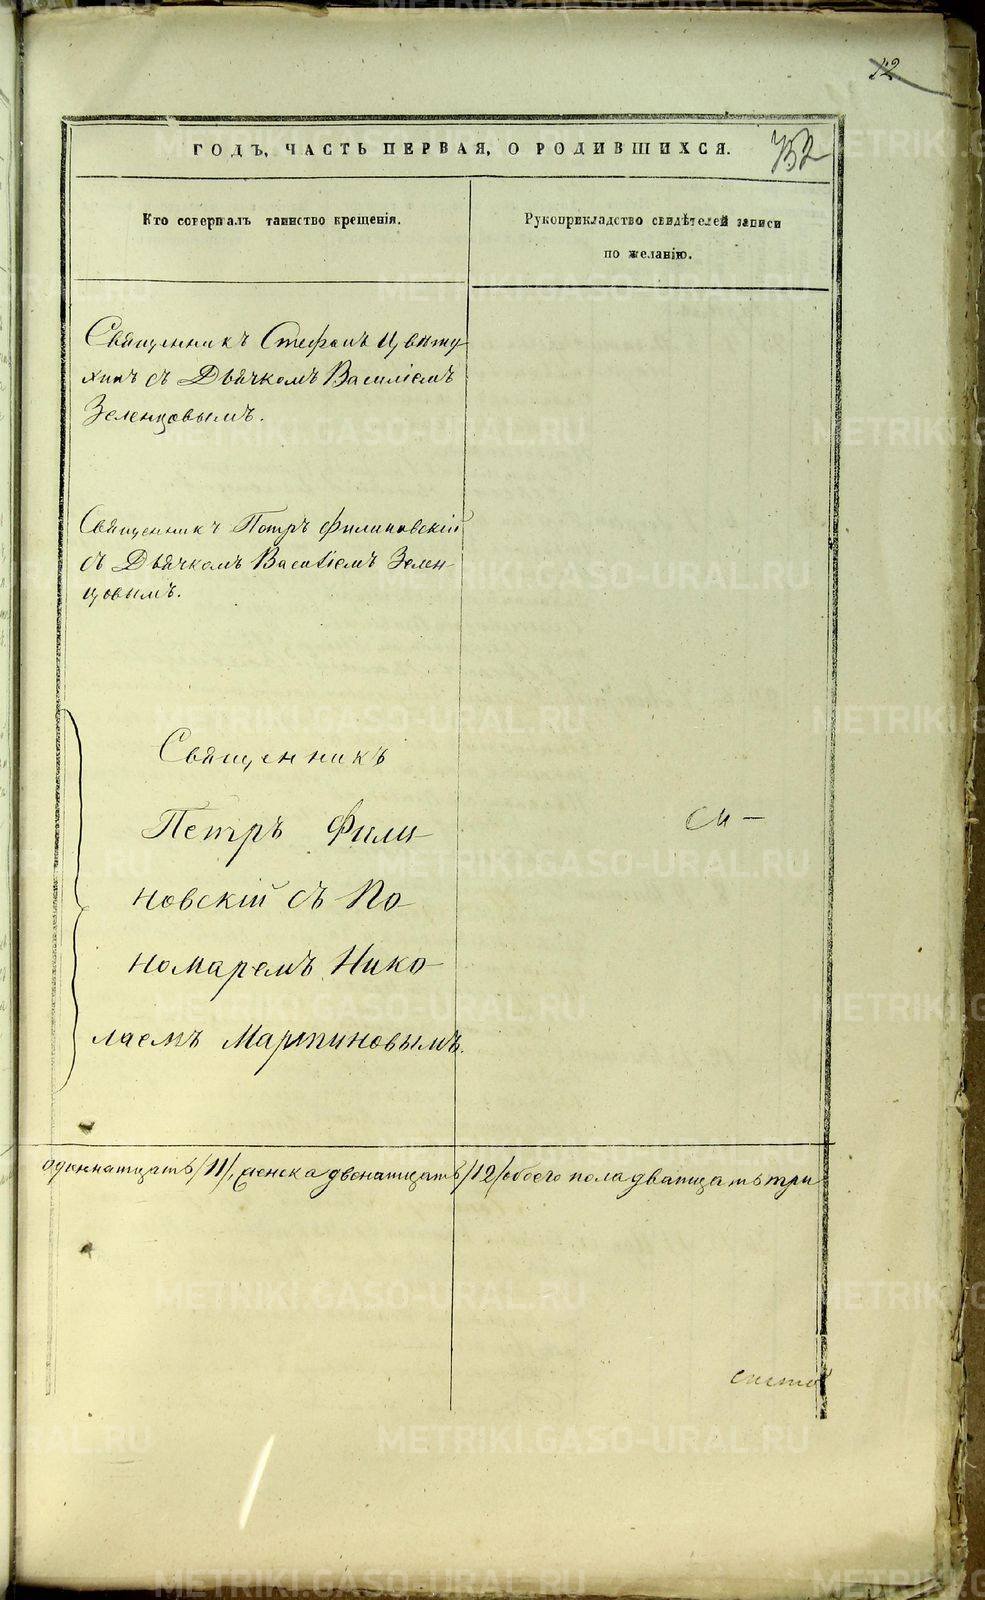 12
752
ГОДЪ, ЧАСТЬ ПЕРВАЯ, О РОДИВШИХСЯ.
Кто совершалъ таинство крещенія.
Рукоприкладство свидѣтелей записи
по желанію.
Священникъ Стефанъ Цвѣту
хинъ съ Дьячкомъ Василіемъ
Зеленцовымъ.
Священникъ Петръ Филиновскій
съ Дьячкомъ Василіемъ Зелен
цовымъ.
Священникъ
Петръ Фили
новскій съ По
номаремъ Нико
лаемъ Мартиновымъ.
одиннатцать /11/, женска двенатцать /12/ обоего пола дватцать три
METRIKI.GASO-URAL.RU